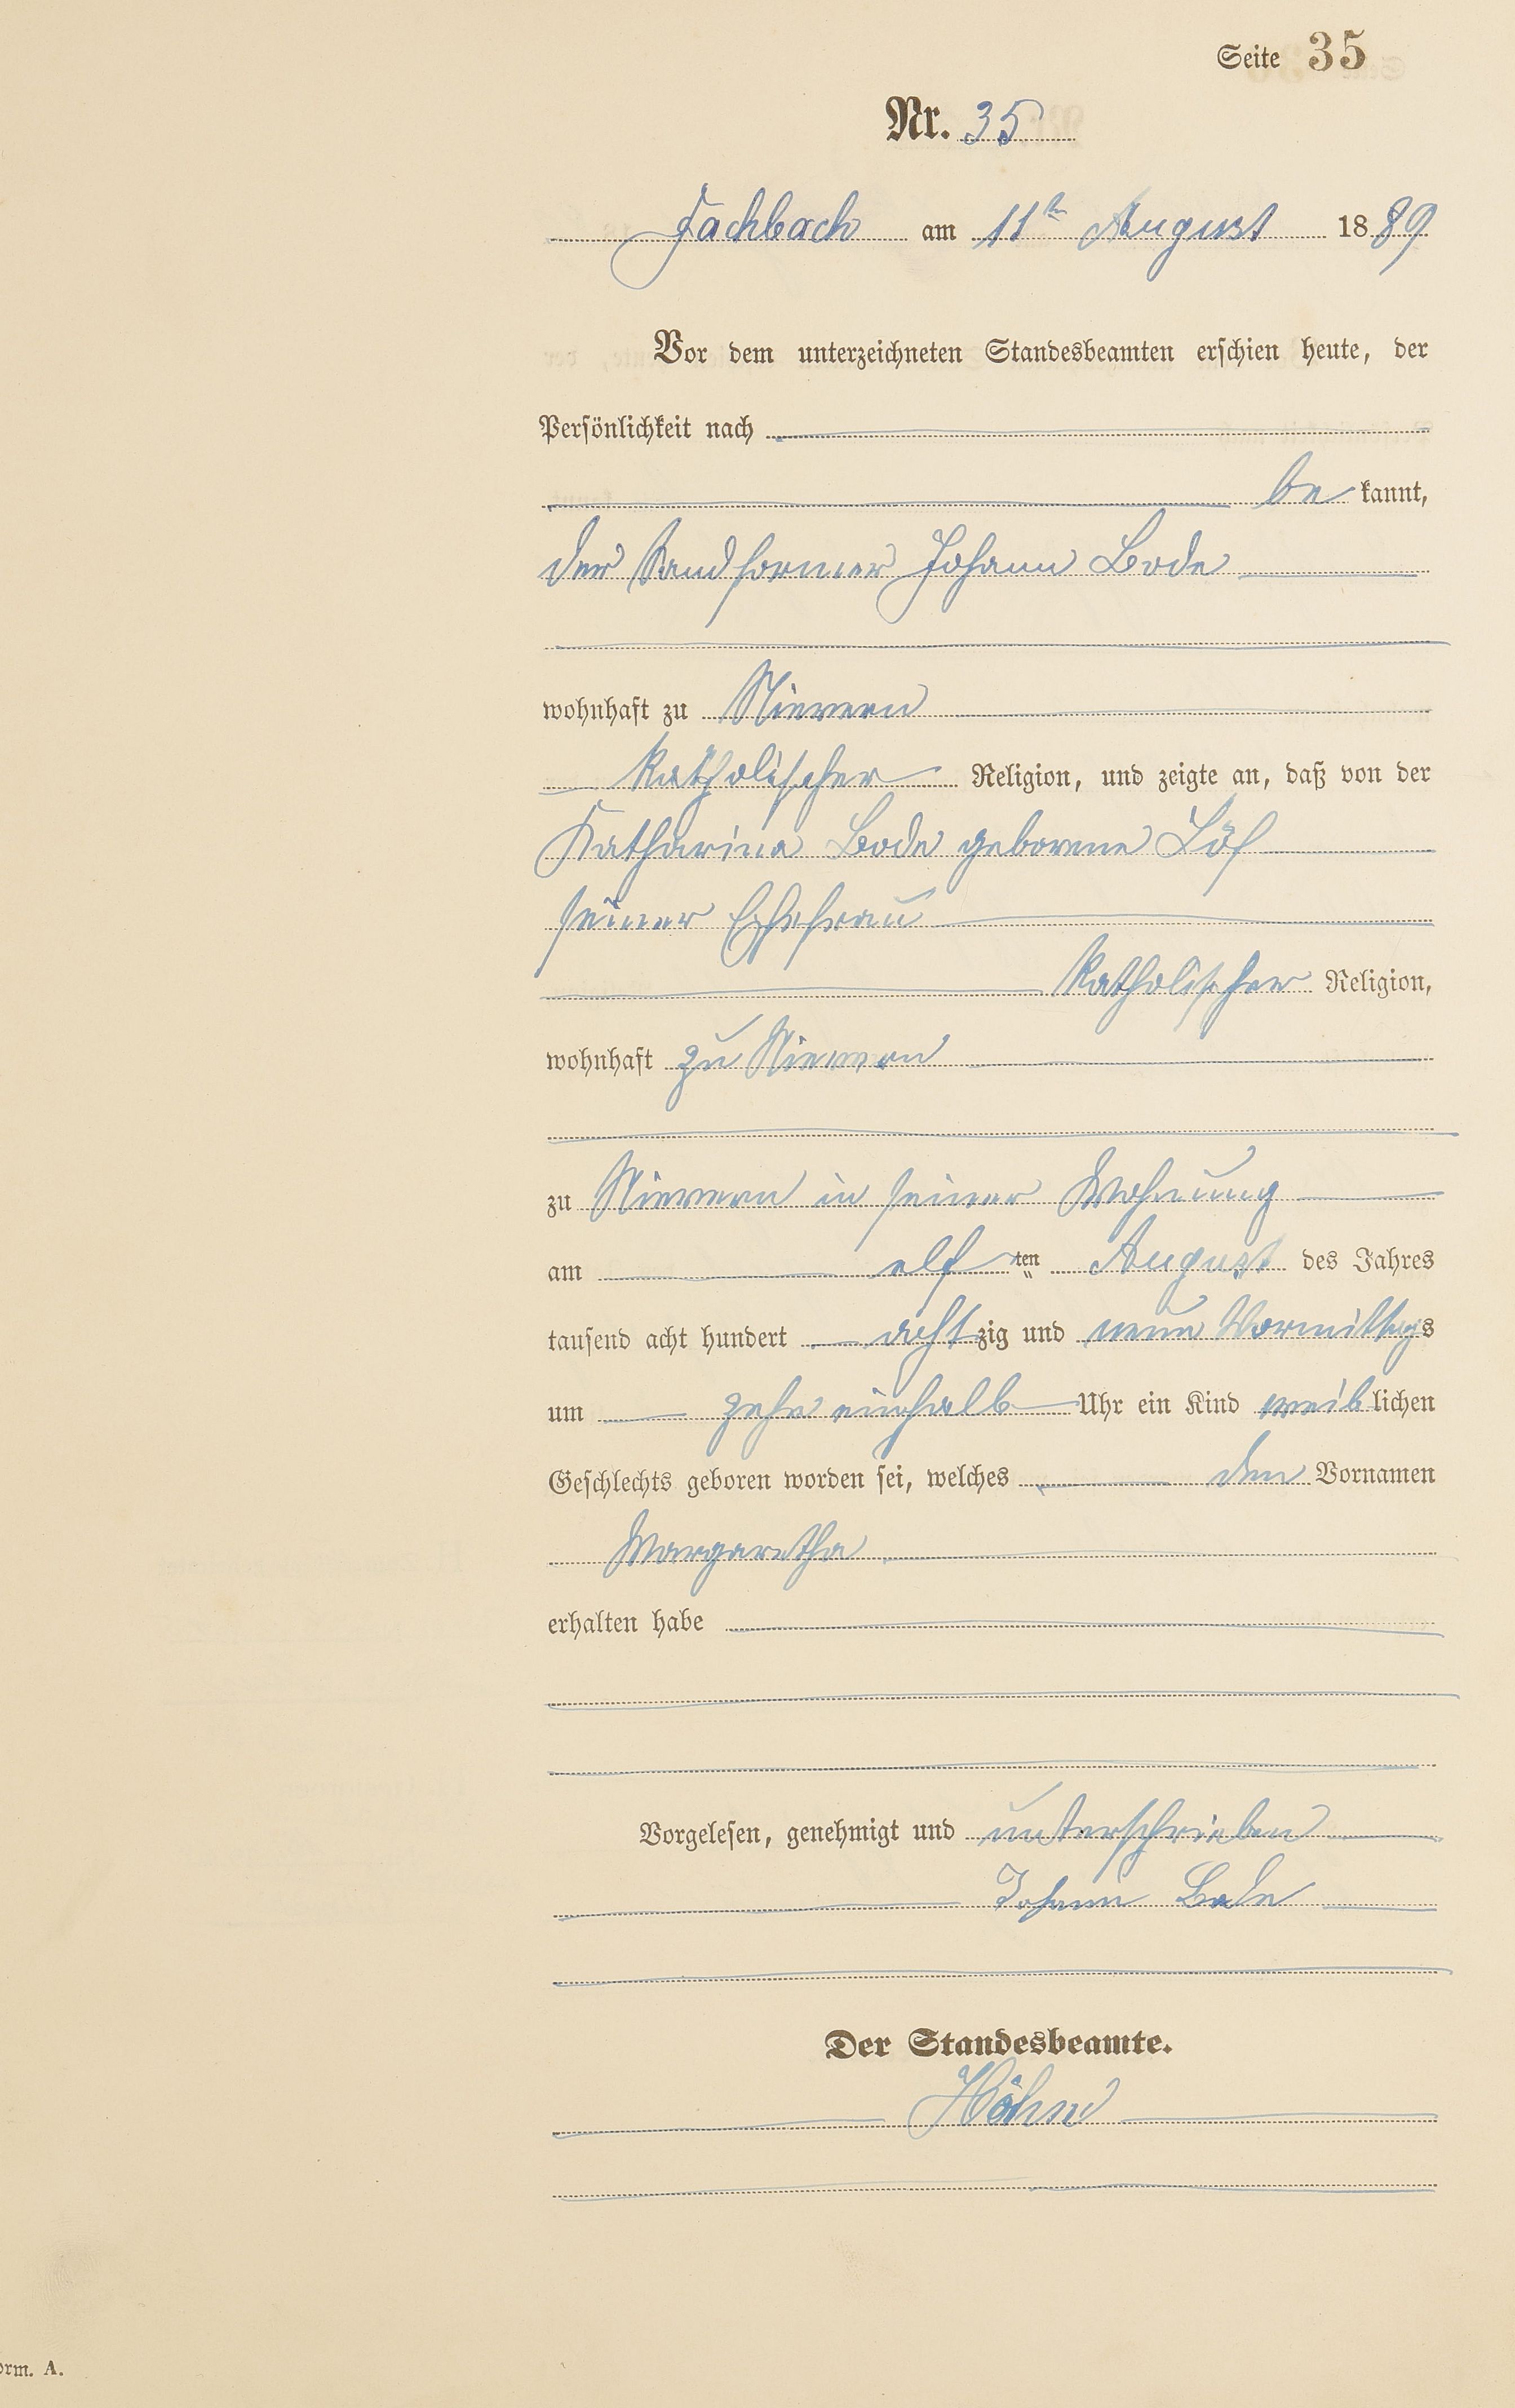 Seite 35
Nr. 35
Fachbach am 11ten August 1889
Vor dem unterzeichneten Standesbeamten erschien heute, der
Persönlichkeit nach
bekannt,
der Sandformer Johann Bode
wohnhaft zu Nievern
katholischer Religion, und zeigte an, daß von der
Katharina Bode geborene Löf
seiner Ehefrau
katholischer Religion,
wohnhaft zu Nievern
zu Nievern in seiner Wohnung
am elften August des Jahres
tausend acht hundert achtzig und neun Vormittags
um zehn einhalb Uhr ein Kind weiblichen
Geschlechts geboren worden sei, welches den Vornamen
Margaretha
erhalten habe
Vorgelesen, genehmigt und unterschrieben
Johann Bode
Der Standesbeamte.
Höhn
orm. A.